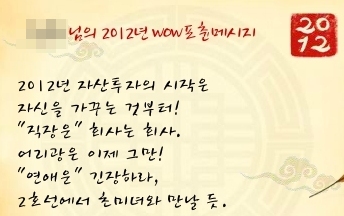 님의 2012년 WOW포춘메시지
20
12
2012년 자산투자의 시작은
자신을 가꾸는 것부터!
"직장운" 회사는 회사.
어리광은 이제 그만!
"연애운" 긴장하라,
2호선에서 촌미녀와 만날 듯.